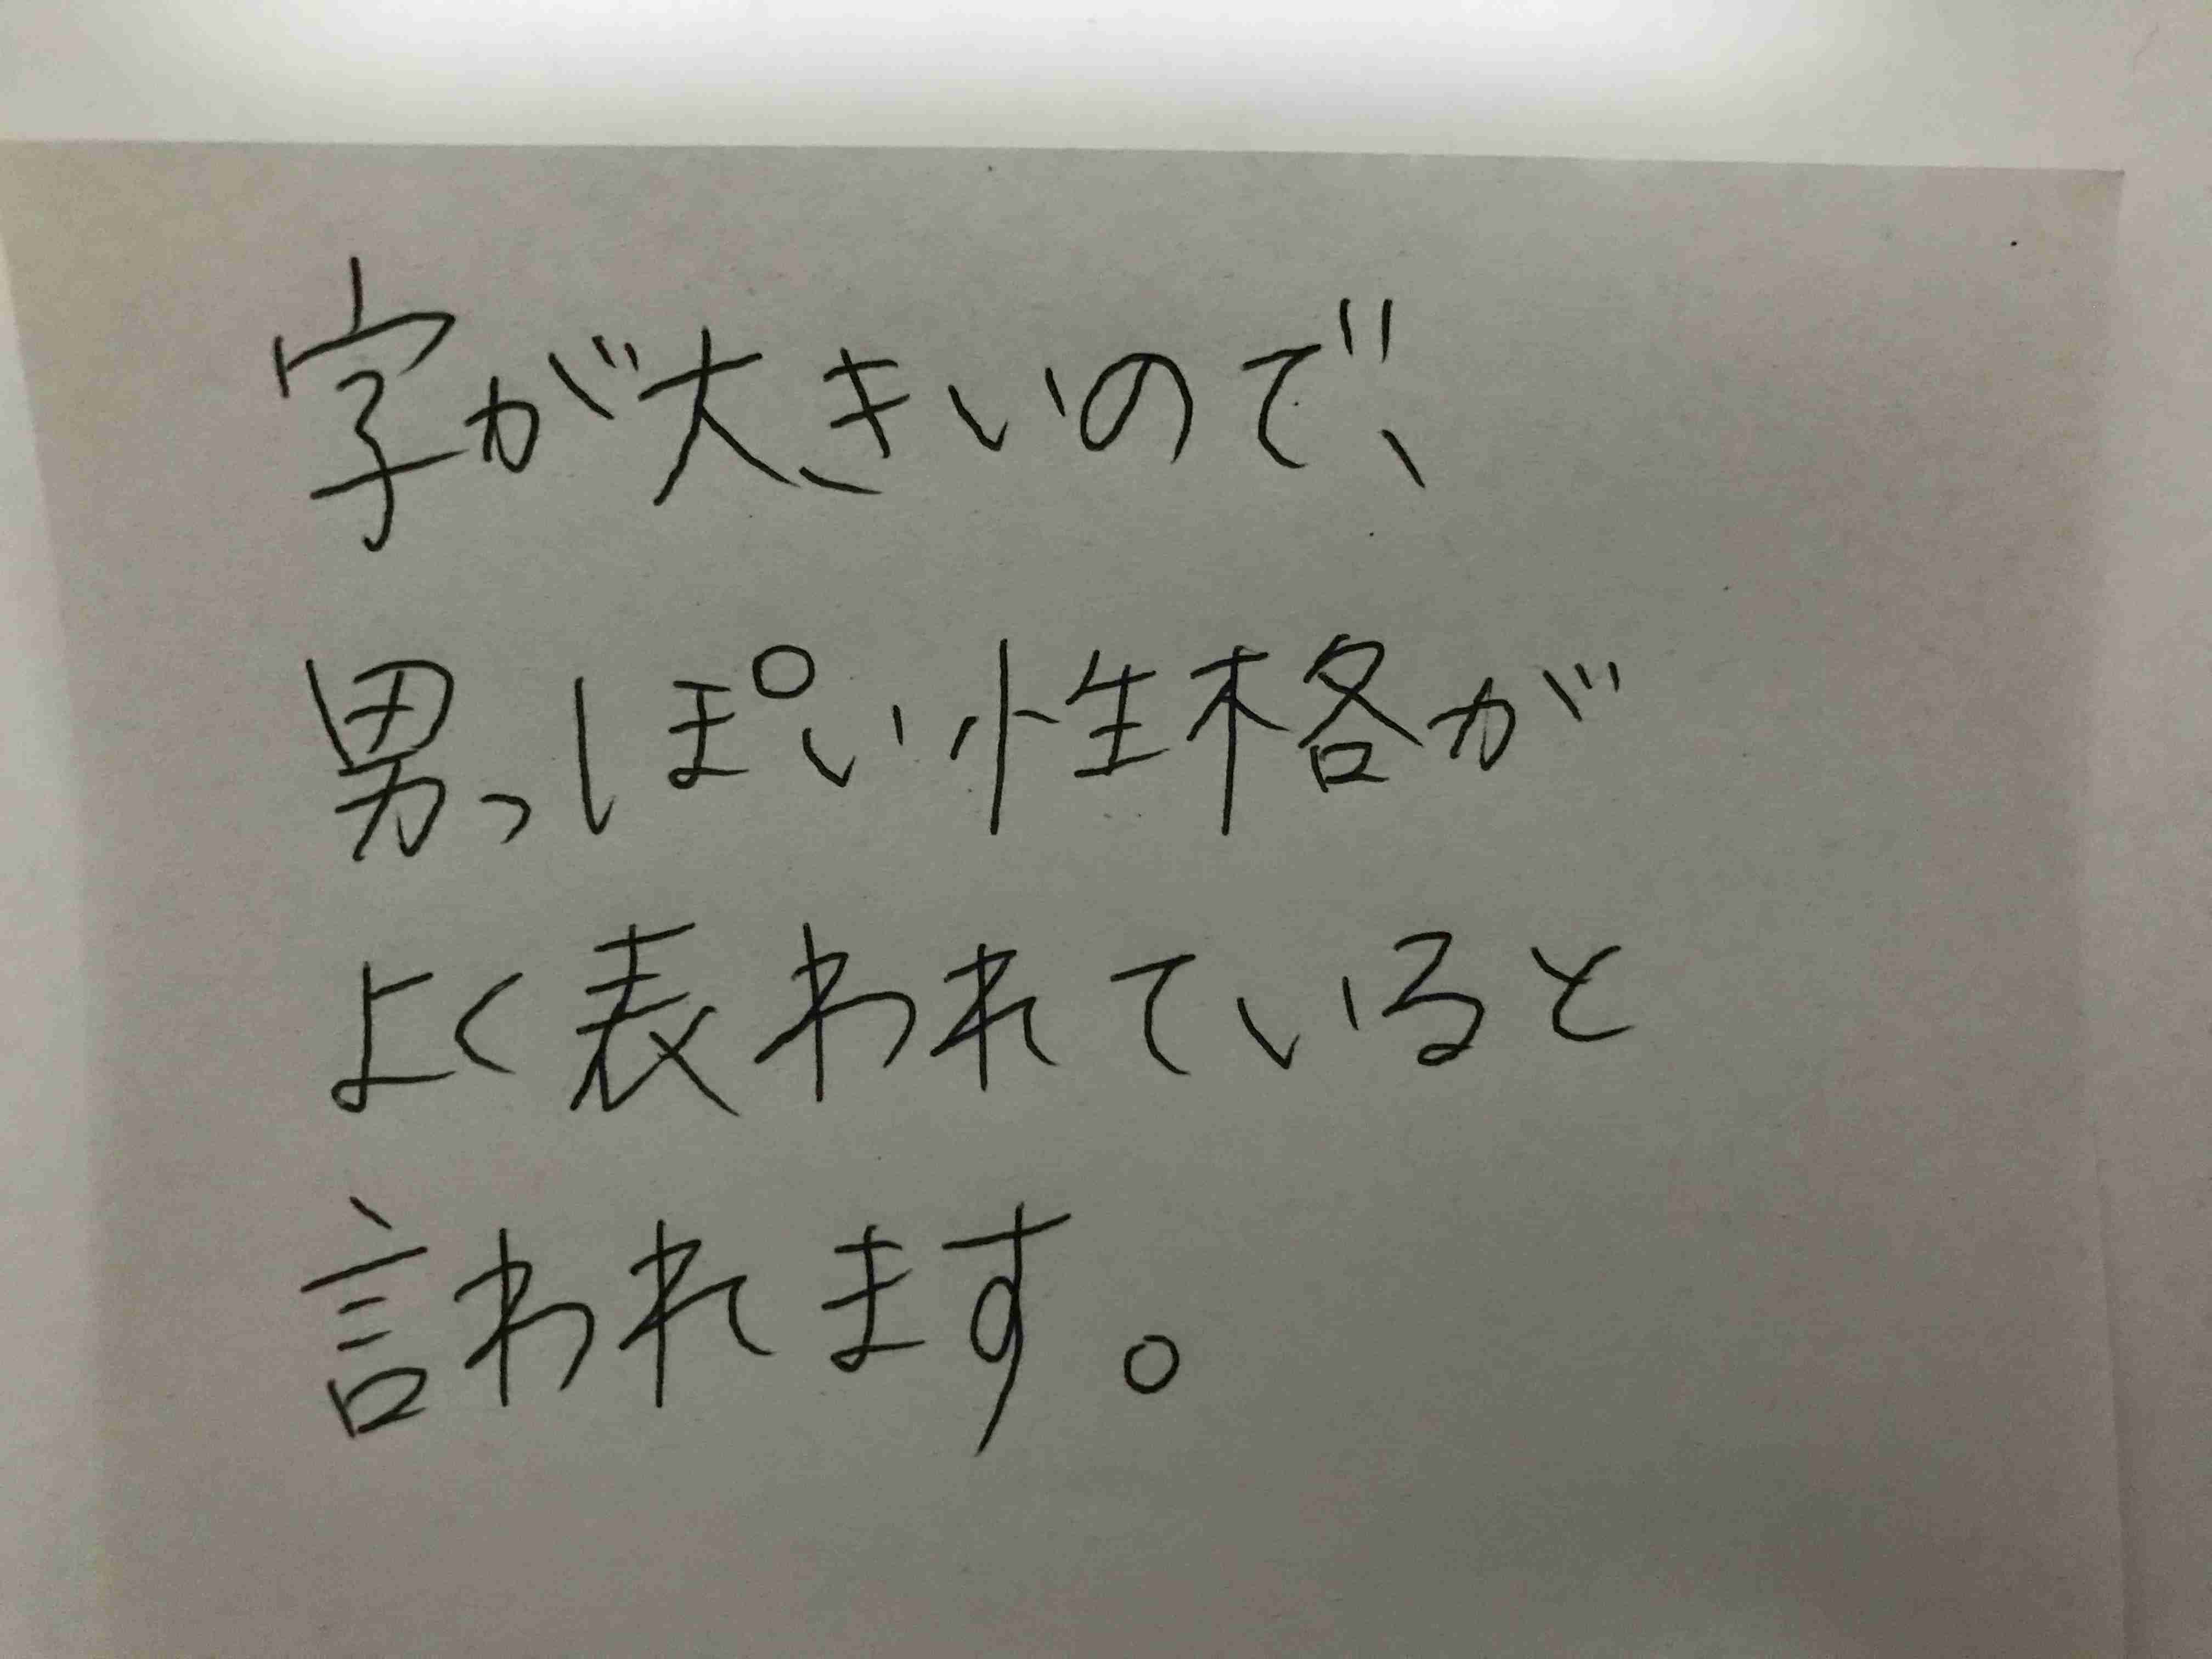 字が大きいので、
男っぽい性格が
よく表われていると
言われます。